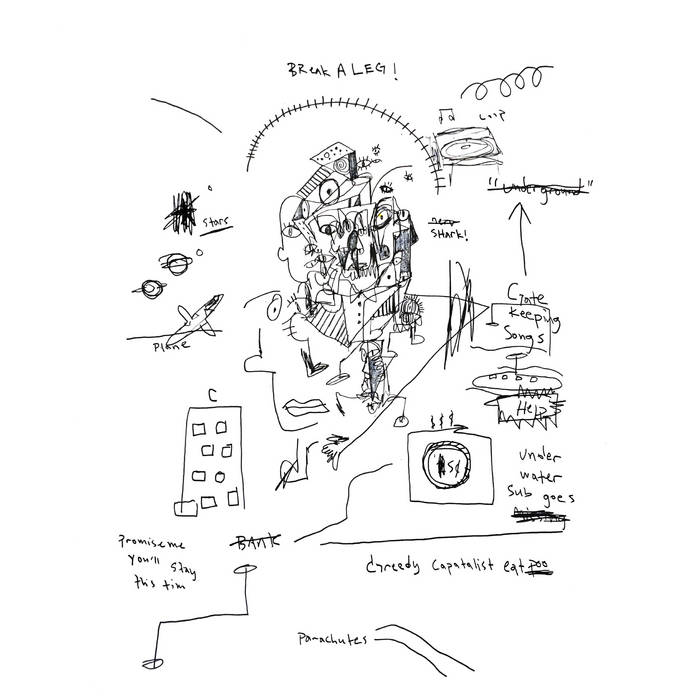 BReak A LEG!
Loop
"underground"
stars
new
SHARK!
Gate
Keeping
Songs
Plane
Help
C
under
water
Sub goes
BANK
Promise me
You'll stay
this tim
Greedy Capatalist eat poo
Parachutes